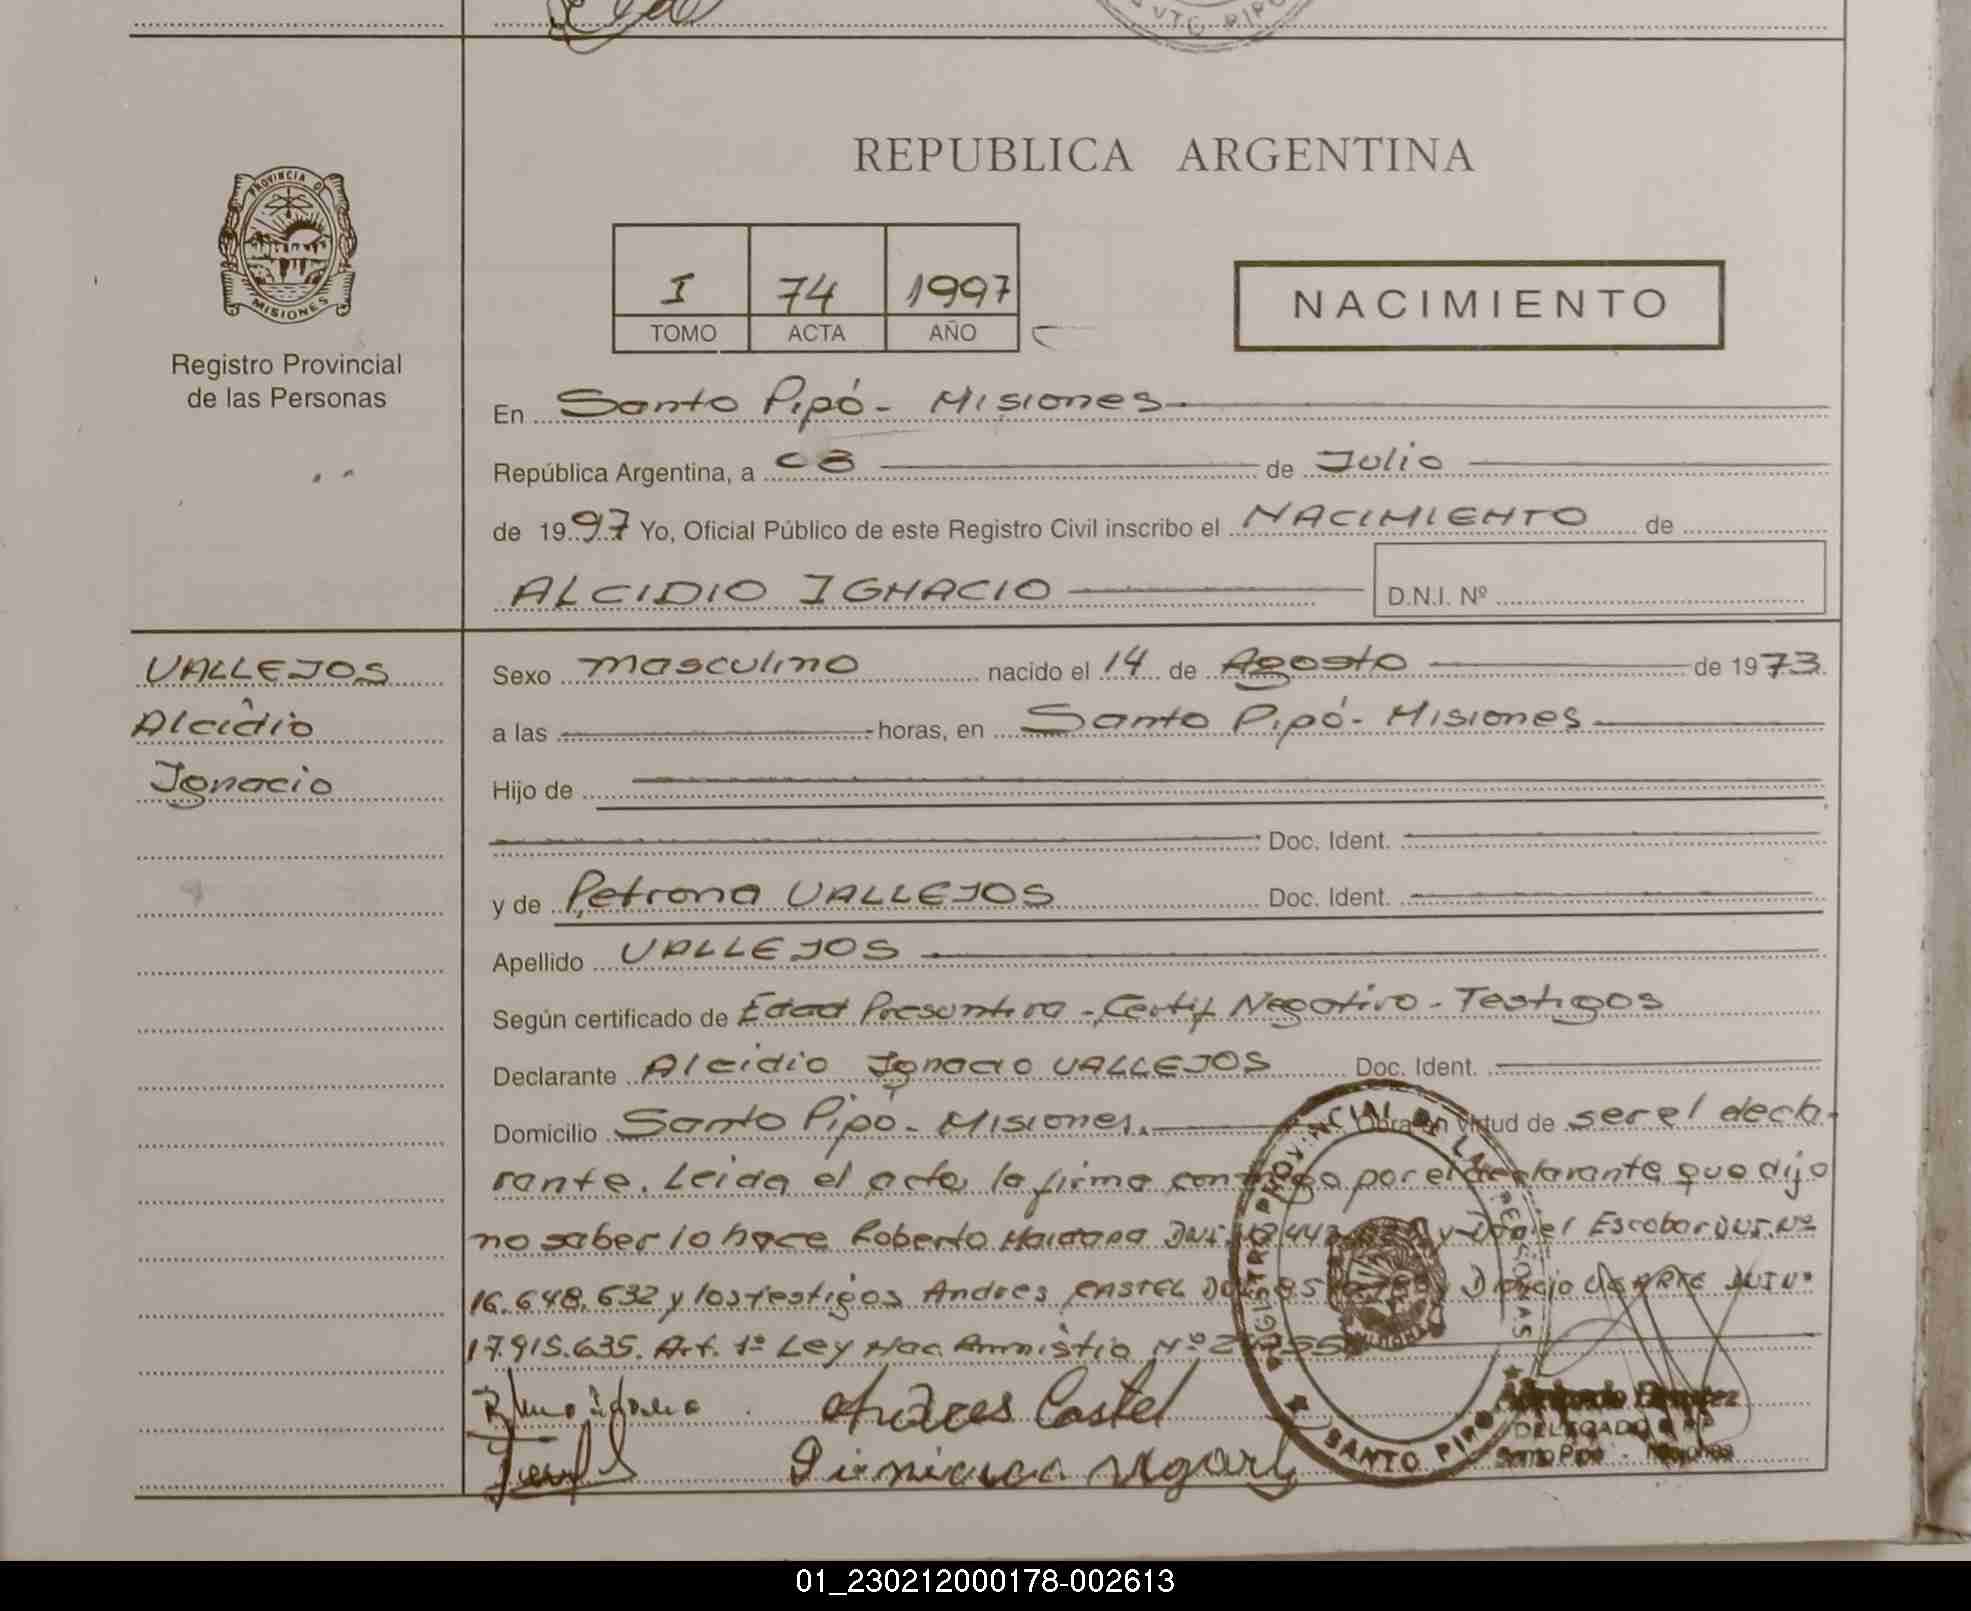 SANTO PIPO
REPUBLICA ARGENTINA
PROVINCIA D
MISIONES
Registro Provincial
de las Personas
I 74 1997
TOMO ACTA AÑO
NACIMIENTO
En Santo Pipó - Misiones
República Argentina, a 08 de Julio
de 1997 Yo, Oficial Público de este Registro Civil inscribo el NACIMIENTO de
ALCIDIO IGNACIO D.N.I. Nº
VALLEJOS
Alcidio
Ignacio
Sexo masculino nacido el 14 de Agosto de 1973.
a las horas, en Santo Pipó - Misiones
Hijo de
Doc. Ident.
y de Petrona VALLEJOS Doc. Ident.
Apellido VALLEJOS
Según certificado de Edad Presuntiva - Certif Negativo - Testigos
Declarante Alcidio Ignacio VALLEJOS Doc. Ident.
Domicilio Santo Pipó - Misiones. Obra en virtud de ser el decla-
rante. Leida el acta, la firma conmigo por el declarante que dijo
no saber lo hace Roberto Maidana DNI y Daniel Escobar DNI. Nº
16.648.632 y los testigos Andres CASTEL y Dionicio UGARTE DNI Nº
17.915.635. Art. 1º Ley Nac. Amnistia Nº
Andres Castel
REGISTRO PROVINCIAL DE LAS PERSONAS
SANTO PIPO
DELEGADO
Santo Pipó - Misiones
01_230212000178-002613